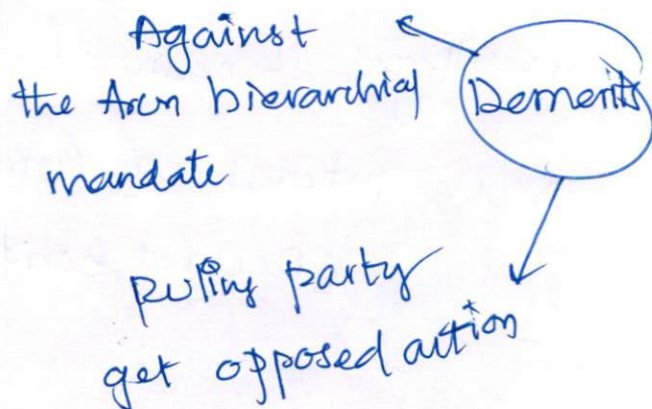 Against
the hierarchial
mandate
Demerits
Ruling party
get opposed action